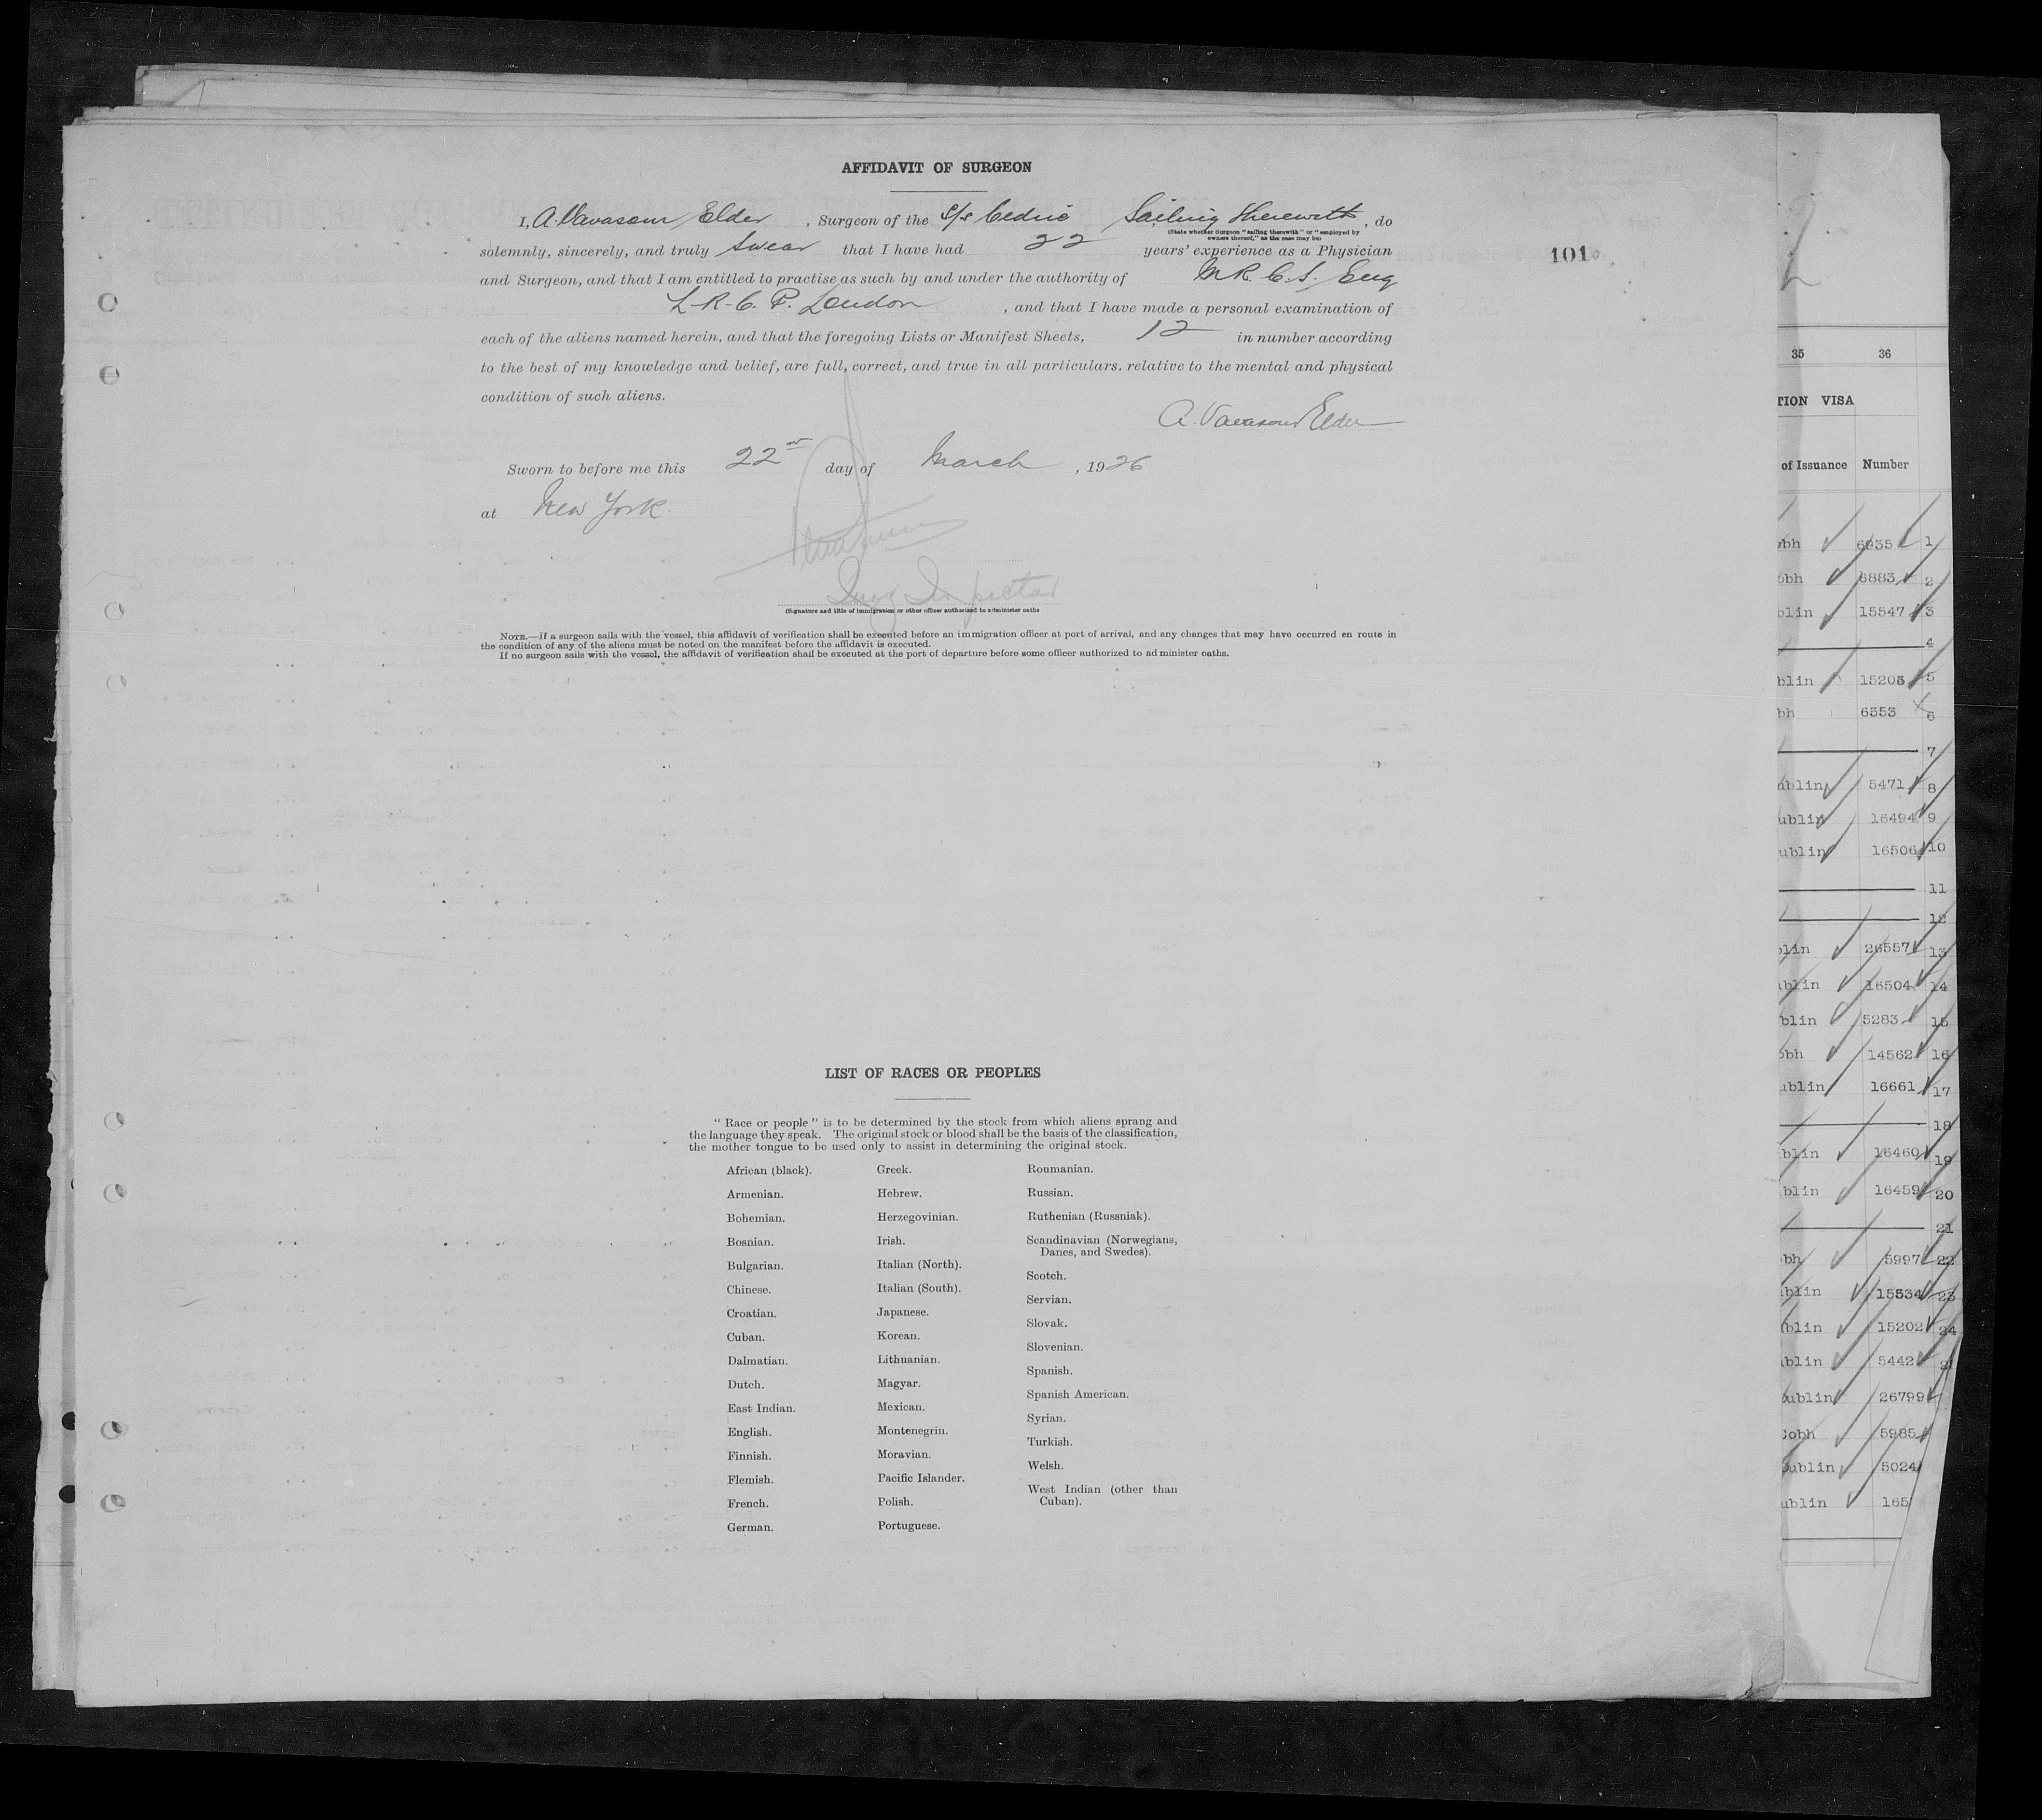 AFFIDAVIT OF SURGEON
I, A. Vavasour Elder, Surgeon of the S/s Cedric Sailing therewith, do
(State whether Surgeon "sailing therewith" or "employed by
owners thereof," as the case may be)
solemnly, sincerely, and truly swear that I have had 22 years' experience as a Physician
101
and Surgeon, and that I am entitled to practise as such by and under the authority of M.R.C.S. Eng
L.R.C.P. London, and that I have made a personal examination of
each of the aliens named herein, and that the foregoing Lists or Manifest Sheets, 12 in number according
to the best of my knowledge and belief, are full, correct, and true in all particulars. relative to the mental and physical
condition of such aliens.
A. Vavasour Elder
Sworn to before me this 22nd day of March, 1926
at New York
Inspector
(Signature and title of immigration or other officer authorized to administer oaths
NOTE.—If a surgeon sails with the vessel, this affidavit of verification shall be executed before an immigration officer at port of arrival, and any changes that may have occurred en route in
the condition of any of the aliens must be noted on the manifest before the affidavit is executed.
If no surgeon sails with the vessel, the affidavit of verification shall be executed at the port of departure before some officer authorized to administer oaths.
LIST OF RACES OR PEOPLES
" Race or people " is to be determined by the stock from which aliens sprang and
the language they speak. The original stock or blood shall be the basis of the classification,
the mother tongue to be used only to assist in determining the original stock.
African (black).
Armenian.
Bohemian.
Bosnian.
Bulgarian.
Chinese.
Croatian.
Cuban.
Dalmatian.
Dutch.
East Indian.
English.
Finnish.
Flemish.
French.
German.
Greek.
Hebrew.
Herzegovinian.
Irish.
Italian (North).
Italian (South).
Japanese.
Korean.
Lithuanian.
Magyar.
Mexican.
Montenegrin.
Moravian.
Pacific Islander.
Polish.
Portuguese.
Roumanian.
Russian.
Ruthenian (Russniak).
Scandinavian (Norwegians,
Danes, and Swedes).
Scotch.
Servian.
Slovak.
Slovenian.
Spanish.
Spanish American.
Syrian.
Turkish.
Welsh.
West Indian (other than
Cuban).
35 36
TION VISA
of Issuance Number
obh 6935 1
obh 6883 2
blin 15547 3
4
blin 15203 5
bh 6353 6
7
ublin 5471 8
ublin 16494 9
ublin 16506 10
11
12
blin 26557 13
ublin 16504 14
blin 5283 15
obh 14562 16
ublin 16661 17
18
blin 16460 19
blin 16459 20
21
bh 5997 22
ublin 15534 23
ublin 15202 24
ublin 5442 2
ublin 26799
Cobh 5985
Dublin 5024
ublin 165